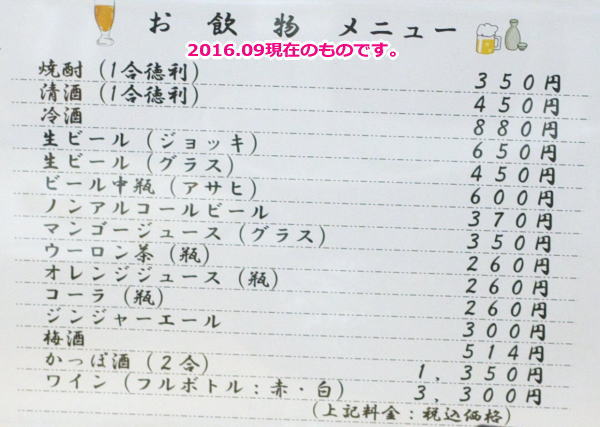 お 飲 物 メニュー
2016.09現在のものです。
焼酎（1合徳利） 350円
清酒（1合徳利） 450円
冷酒 880円
生ビール（ジョッキ） 650円
生ビール（グラス） 450円
ビール中瓶（アサヒ） 600円
ノンアルコールビール 370円
マンゴージュース（グラス） 350円
ウーロン茶（瓶） 260円
オレンジジュース（瓶） 260円
コーラ（瓶） 260円
ジンジャーエール 300円
梅酒 514円
かっぽ酒（2合） 1,350円
ワイン（フルボトル：赤・白） 3,300円
（上記料金：税込価格）